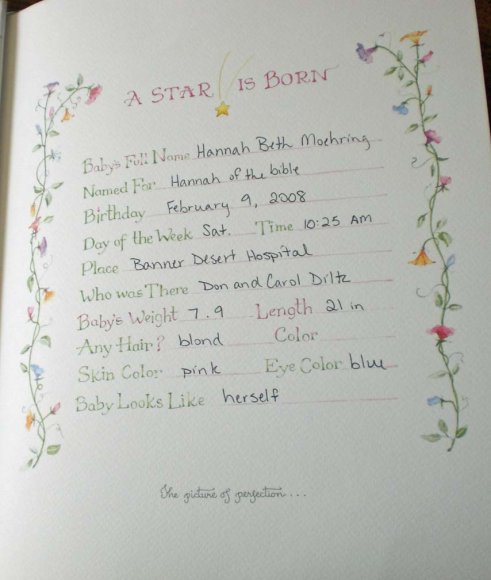 A STAR IS BORN
Baby's Full Name Hannah Beth Moehring
Named For Hannah of the bible
Birthday February 9, 2008
Day of the Week Sat. Time 10:25 AM
Place Banner Desert Hospital
Who was There Don and Carol Diltz
Baby's Weight 7.9 Length 21 in
Any Hair? blond Color
Skin Color pink Eye Color blue
Baby Looks Like herself
The picture of perfection...